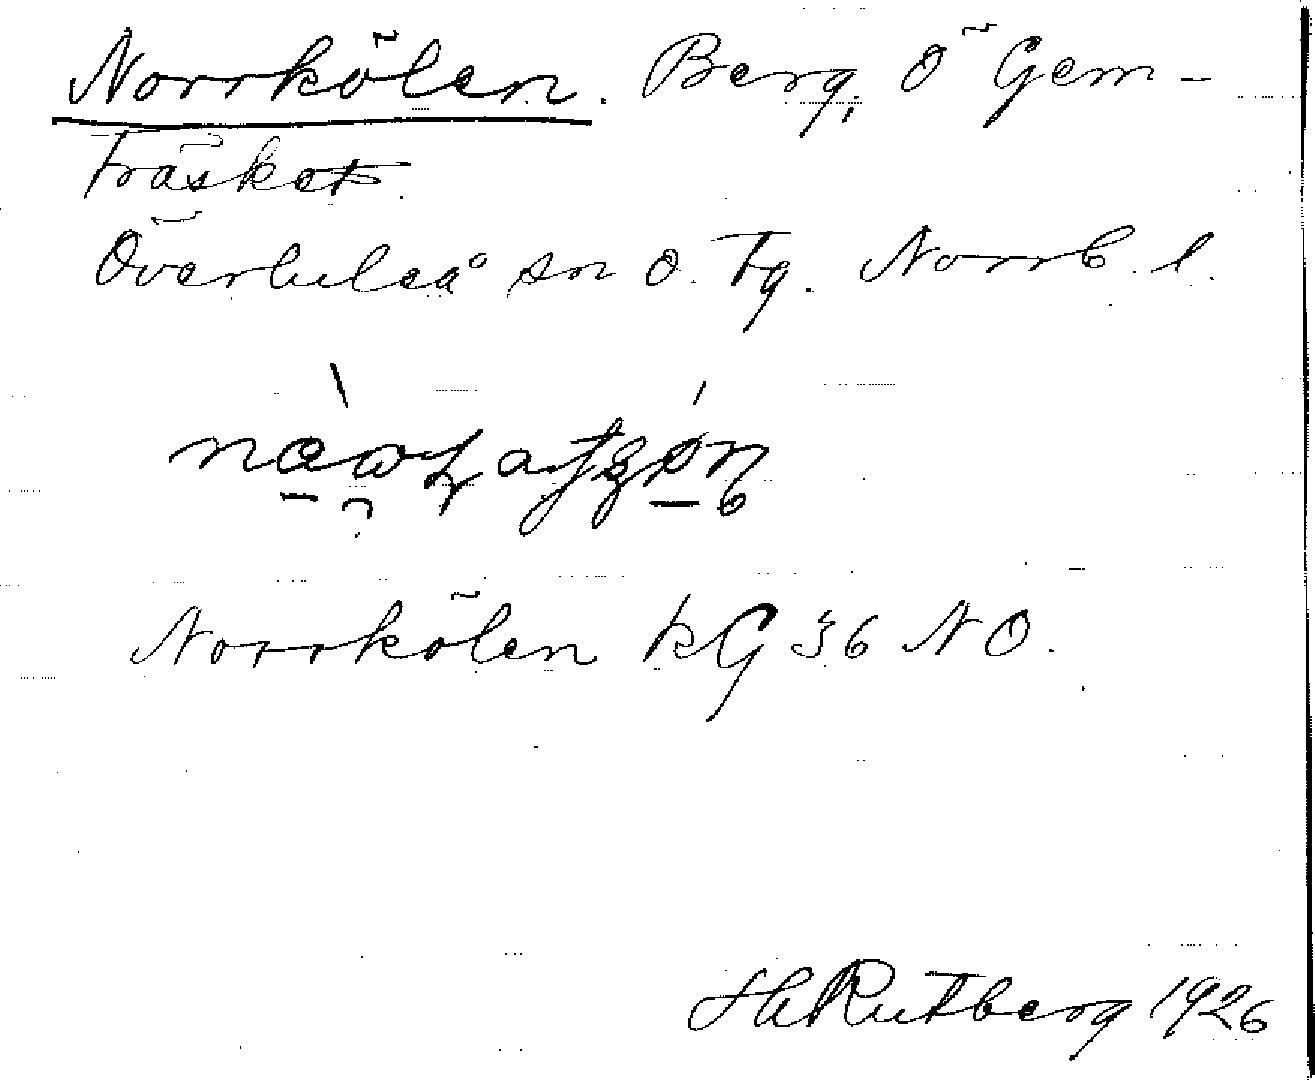 Norrkölen. Berg, Ö Gem-
träsket.
Överluleå sn Ö. Tg. Norrb. l.
Norrkölen kG 36 NO.
H Rutberg 1926